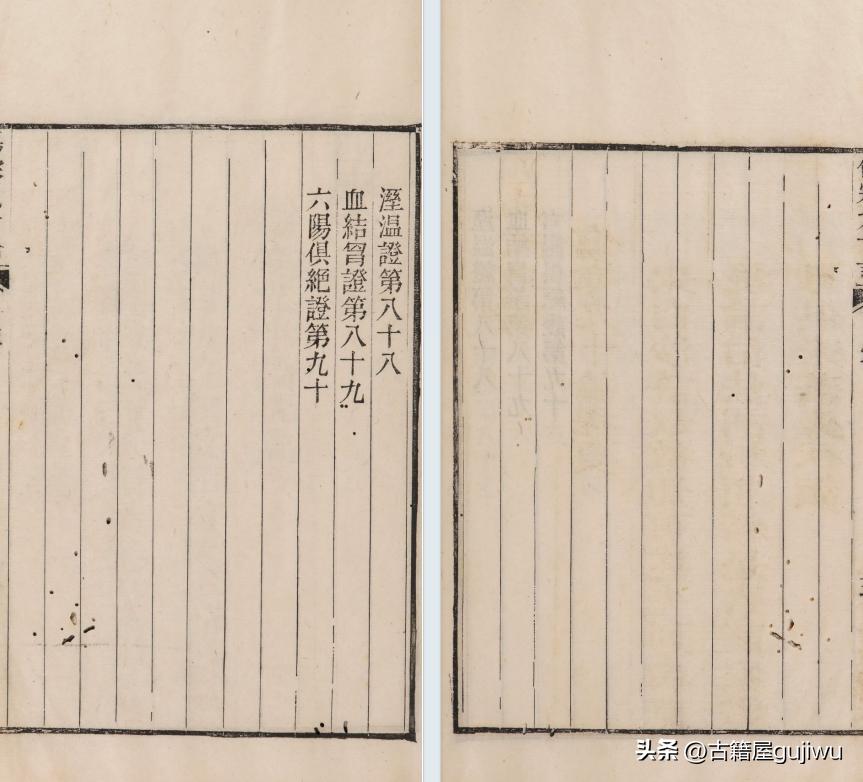 溼温證第八十八
血結胷證第八十九
六陽俱絶證第九十
头条 @古籍屋gujiwu